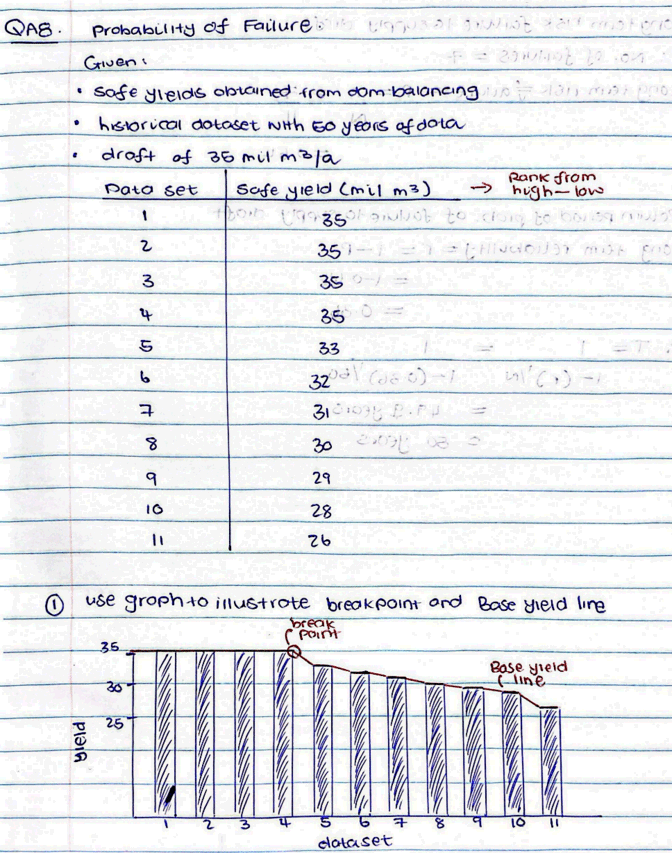 QA8. Probability of Failure:
Given:
• safe yields obtained from dam balancing
• historical dataset with 50 years of data
• draft of 35 mil m3/a
Data set Safe yield (mil m3) → Rank from high-low
1 35
2 35
3 35
4 35
5 33
6 32
7 31
8 30
9 29
10 28
11 26
① use graph to illustrate breakpoint and Base yield line
break point
Base yield line
35
30
25
yield
1 2 3 4 5 6 7 8 9 10 11
dataset